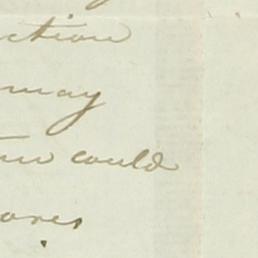 ction
may
could
ores